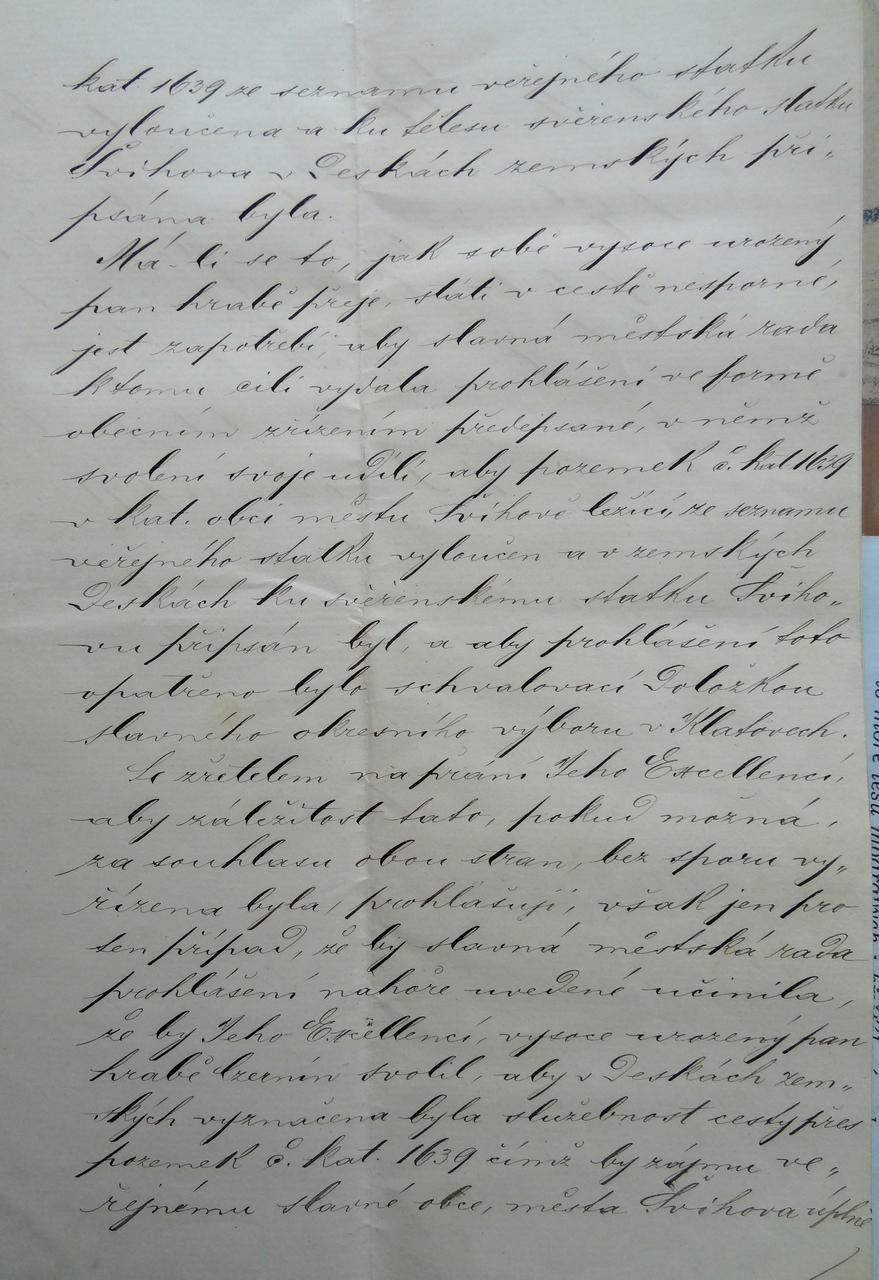 kat 1639 ze seznamu veřejného statku
vyloučena a ku tělesu svěřenského statku
Švihova v Deskách zemských při„
psána byla.
Má-li se to, jak sobě vysoce urozený
pan hrabě přeje, státi v cestě nesporné,
jest zapotřebí, aby slavná městská rada
k tomu cíli vydala prohlášení ve formě
obecním zřízením předepsané, v němž
svolení svoje udílí, aby pozemek č. kat 1639
v kat. obci městu Švihově ležící, ze seznamu
veřejného statku vyloučen a v zemských
Deskách ku svěřenskému statku Švího„
vu připsán byl, a aby prohlášení toto
opatřeno bylo schvalovací Doložkou
slavného okresního výboru v Klatovech.
Se zřetelem na přání Jeho Excellencí,
aby záležitost tato, pokud možná,
za souhlasu obou stran, bez sporu vy„
řízena byla, prohlašuji, však jen pro
ten případ, že by slavná městská rada
prohlášení nahoře uvedené učinila,
že by Jeho Excellencí, vysoce urozený pan
hrabě Czernín svolil, aby v Deskách zem„
ských vyznačena byla služebnost cesty přes
pozemek č. kat. 1639 čímž by zájmu ve„
řejnému slavné obce, města Švihova úplně